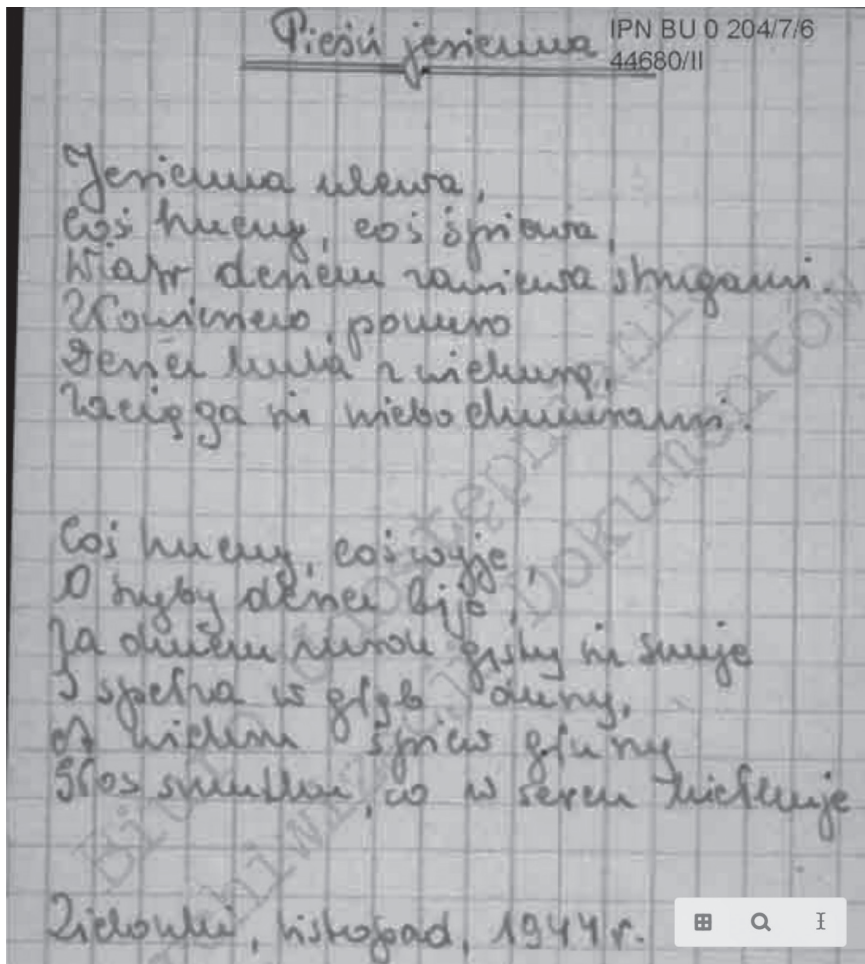 Pieśń jesienna
IPN BU 0 204/7/6
44680/II
Jesienna ulewa,
Coś huczy, coś śpiewa,
Wiatr deszczu zawiewa strugami.
Złowieszczo, ponuro
Deszcz hula z wichurą,
Zaciąga się niebo chmurami.
Coś huczy, coś wyje,
O szyby deszcz bije,
Za dniem mrok gęsty się snuje
I spełza w głąb duszy,
A wichru śpiew głuszy
Głos smutku, co w sercu kiełkuje
Zielonki, listopad, 1944 r.